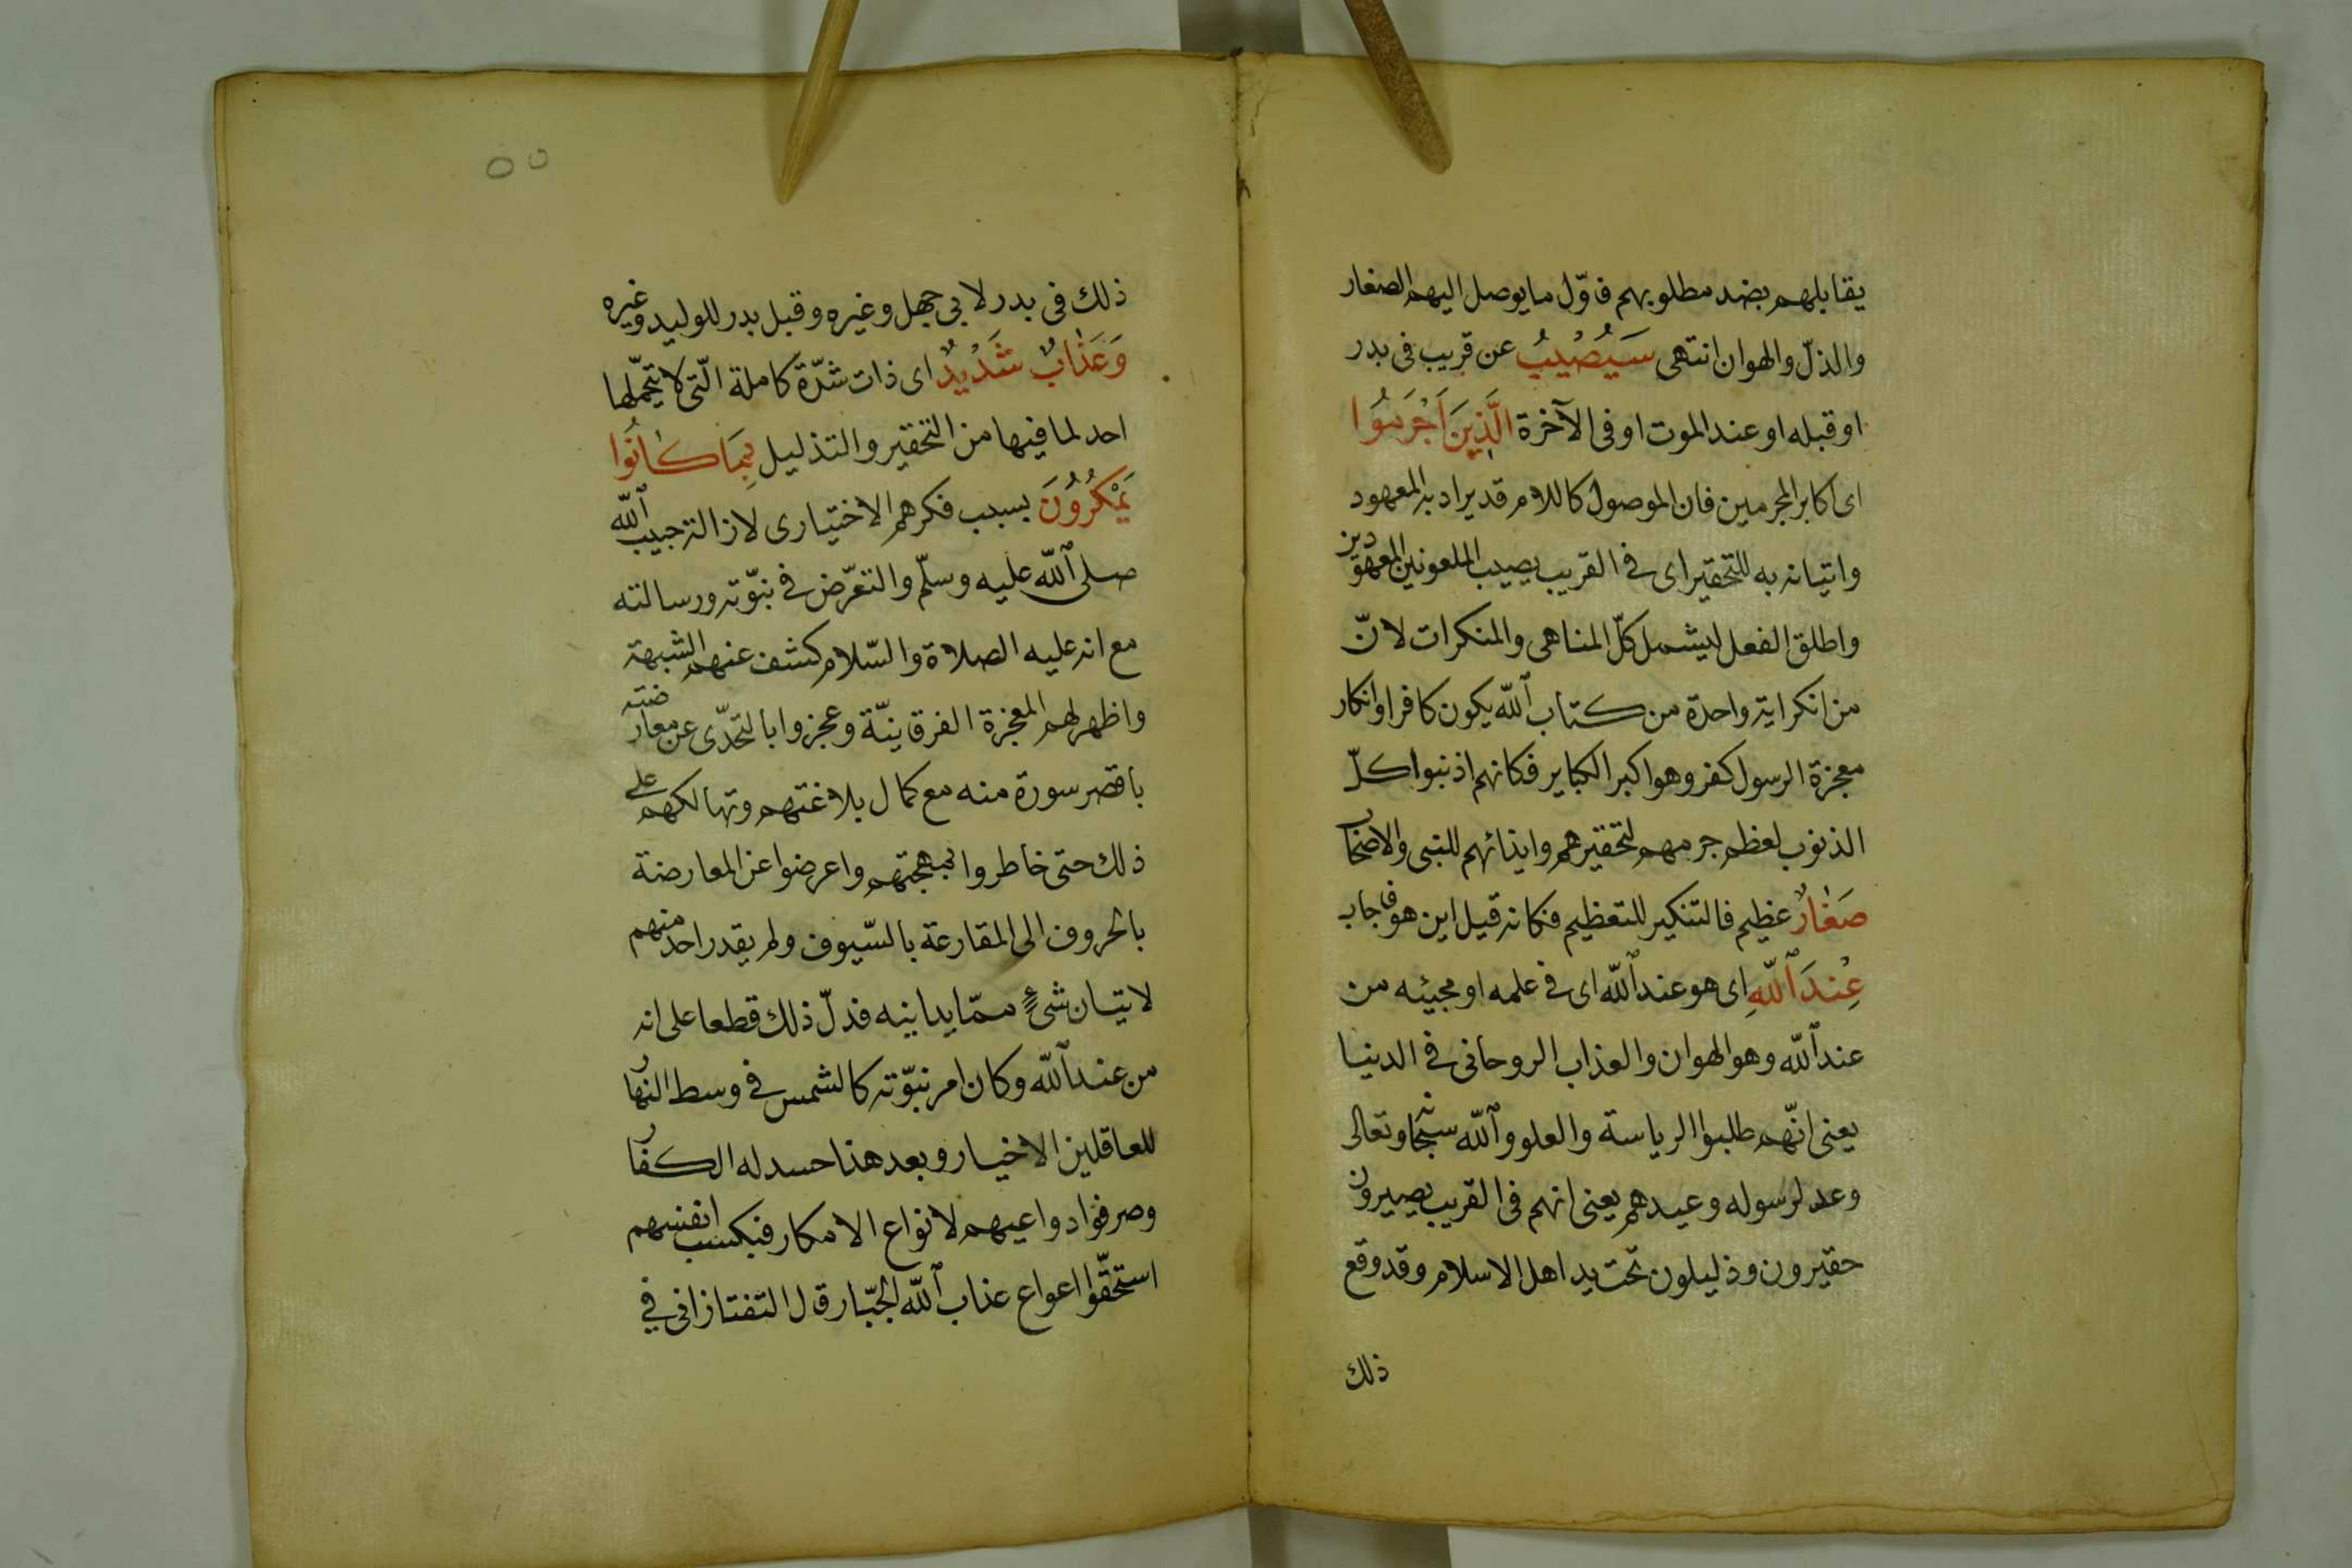 يقابلهم بضد مطلوبهم فاوّل ما يوصل اليهم الصغار
والذلّ والهوان انتهى سَيُصْيبُ عن قريب فى بدر
او قبله او عند الموت او فى الآخرة الَّذِينَ اَجْرَمُوا
اى اكابر المجرمين فان الموصول كاللام قد يراد به المعهود
واتيانه به للتحقير اى فى القريب يصيب الملعونين المعهودين
واطلق الفعل ليشمل كلّ المناهى والمنكرات لانّ
من انكر اية واحدة من كتاب الله يكون كافرا وانكار
معجزة الرسول كفر وهو اكبر الكباير فكانهم اذنبوا كلّ
الذنوب لعظم جرمهم لتحقيرهم وايذائهم للنبى والاصحاب
صَغَارٌ عظيم فالتنكير للتعظيم فكانه قيل اين هو فاجاب
عِنْدَ اللّٰهِ اى هو عند الله اى فى علمه او مجيئه من
عند الله وهو الهوان والعذاب الروحانى فى الدنيا
يعنى انّهم طلبوا الرياسة والعلو والله سبحانه وتعالى
وعد لرسوله وعيدهم يعنى انهم فى القريب يصيرون
حقيرون وذليلون تحت يد اهل الاسلام وقد وقع
ذلك
٥٥
ذلك فى بدر لابى جهل وغيره وقبل بدر للوليد وغيره
وَعَذَابٌ شَدْيدٌ اى ذات شدّة كاملة الّتى لا يتحمّلها
احد لما فيها من التحقير والتذليل بِمَا كَانُوا
يَمْكُرُونَ بسبب فكرهم الاختيارى لازالة حبيب الله
صلى الله عليه وسلّم والتعرّض فى نبوّته ورسالته
مع انه عليه الصلاة والسّلام كشف عنهم الشبهة
واظهر لهم المعجزة الفرقانيّة وعجزوا بالتحدّى عن معارضته
باقصر سورة منه مع كمال بلاغتهم وتهالكهم على
ذلك حتى خاطروا بمهجتهم واعرضوا عن المعارضة
بالحروف الى المقارعة بالسّيوف ولم يقدر احد منهم
لاتيان شىءٍ ممّا يدانيه فدلّ ذلك قطعا على انه
من عند الله وكان امر نبوّته كالشمس فى وسط النهار
للعاقلين الاخيار وبعد هذا حسد له الكفار
وصرفوا دواعيهم لانواع الامكار فبكسب انفسهم
استحقّوا اعواع عذاب الله الجبّار قال التفتازانى فى